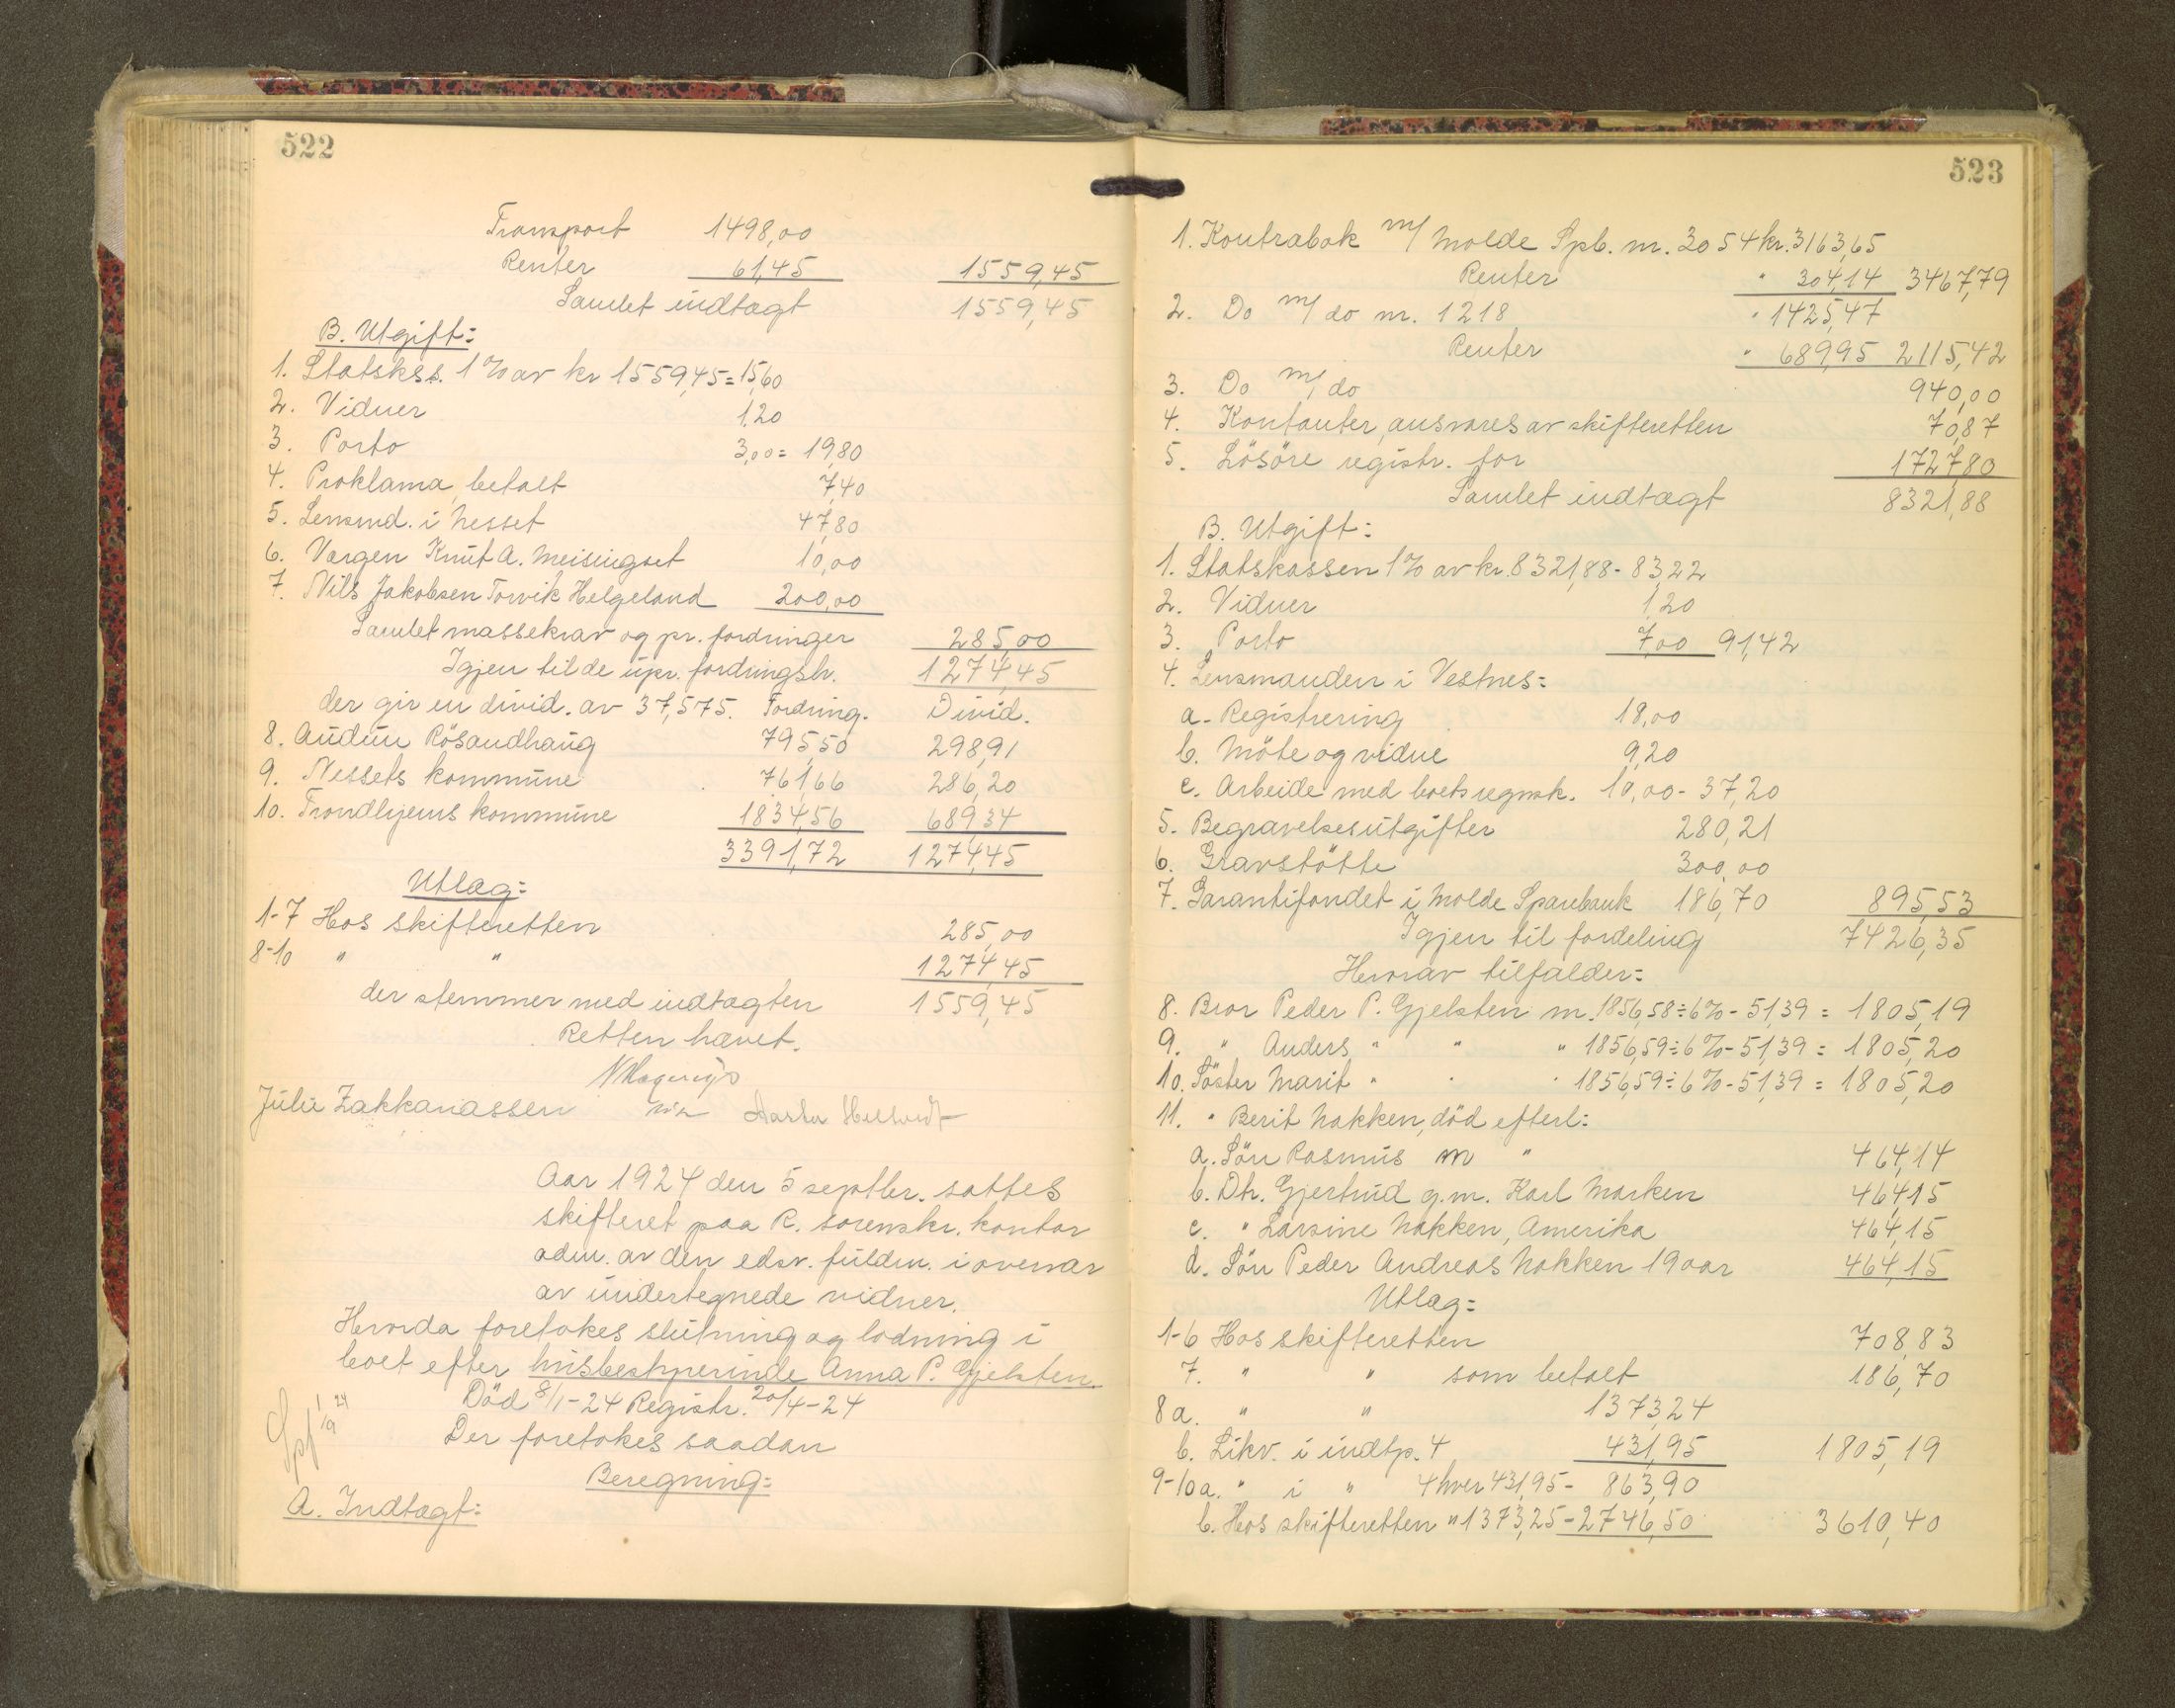 522
Transport 1498,00
Renter 61,45 1559,45
Samlet indtægt 1559,45
B. Utgift:
1. Statskss. 1% av kr 1559,45 = 15,60
2. Vidner 1,20
3. Porto 3,00 = 19,80
4. Proklama, betalt 7,40
5. Lensmd. i Nesset 47,80
6. Værgen Knut A. Meisingset 10,00
7. Nils Jakobsen Torvik Helgeland 200,00
Samlet massekrav og pr. fordringer 285,00
Igjen til de upr. fordringsh. 1274,45
der gir en divid. av 37,575. Fordring. Divid.
8. Audun Rösandhaug 795,50 298,91
9. Nessets kommune 761,66 286,20
10. Trondhjems kommune 1834,56 689,34
3391,72 1274,45
Utlæg:
1-7 Hos skifteretten 285,00
8-10 " " 1274,45
der stemmer med indtægten 1559,45
Retten hævet.
Julie Zakkariassen
Aar 1924 den 5 septbr. sattes
skifteret paa R. sorenskr. kontor
adm. av den edsv. fuldm. i overvær
av undertegnede vidner.
Hvorda foretokes slutning og lodning i
boet efter husbestyrerinde Anna P. Gjelsten
Död 8/1-24 Registr. 20/4-24
Der foretokes saadan
Beregning:
A. Indtægt:
523
1. Kontrabok m/ Molde Spb. nr. 3054 kr. 3163,65
Renter " 304,14 3467,79
2. Do m/ do nr. 1218 " 1425,47
Renter " 689,95 2115,42
3. Do m/ do 940,00
4. Kontanter, ansvares av skifteretten 70,87
5. Lösöre registr. for 1727,80
Samlet indtægt 8321,88
B. Utgift:
1. Statskassen 1% av kr. 8321,88 - 83,22
2. Vidner 1,20
3. Porto 7,00 91,42
4. Lensmanden i Vestnes:
a. Registrering 18,00
b. Möte og vidne 9,20
c. Arbeide med boets regnsk. 10,00 - 37,20
5. Begravelsesutgifter 280,21
6. Gravstötte 300,00
7. Garantifondet i Molde Sparebank 186,70 895,53
Igjen til fordeling 7426,35
Hvorav tilfalder:
8. Bror Peder P. Gjelsten m. 1856,58 ÷ 6% - 51,39 = 1805,19
9. " Anders " " " 1856,59 ÷ 6% - 51,39 = 1805,20
10. Söster Marit " " " 1856,59 ÷ 6% - 51,39 = 1805,20
11. " Berit Nakken, död efterl:
a. Sön Rasmus m " 464,14
b. Dtr. Gjertrud g.m. Karl Marken 464,15
c. " Larsine Nakken, Amerika 464,15
d. Sön Peder Andreas Nakken 19 aar 464,15
Utlæg:
1-6 Hos skifteretten 708,83
7. " " som betalt 186,70
8a. " " 1373,24
b. Likv. i indtp. 4 431,95 1805,19
9-10a. " i " 4 hver 431,95 - 863,90
b. Hos skifteretten " 1373,25 - 2746,50 3610,40